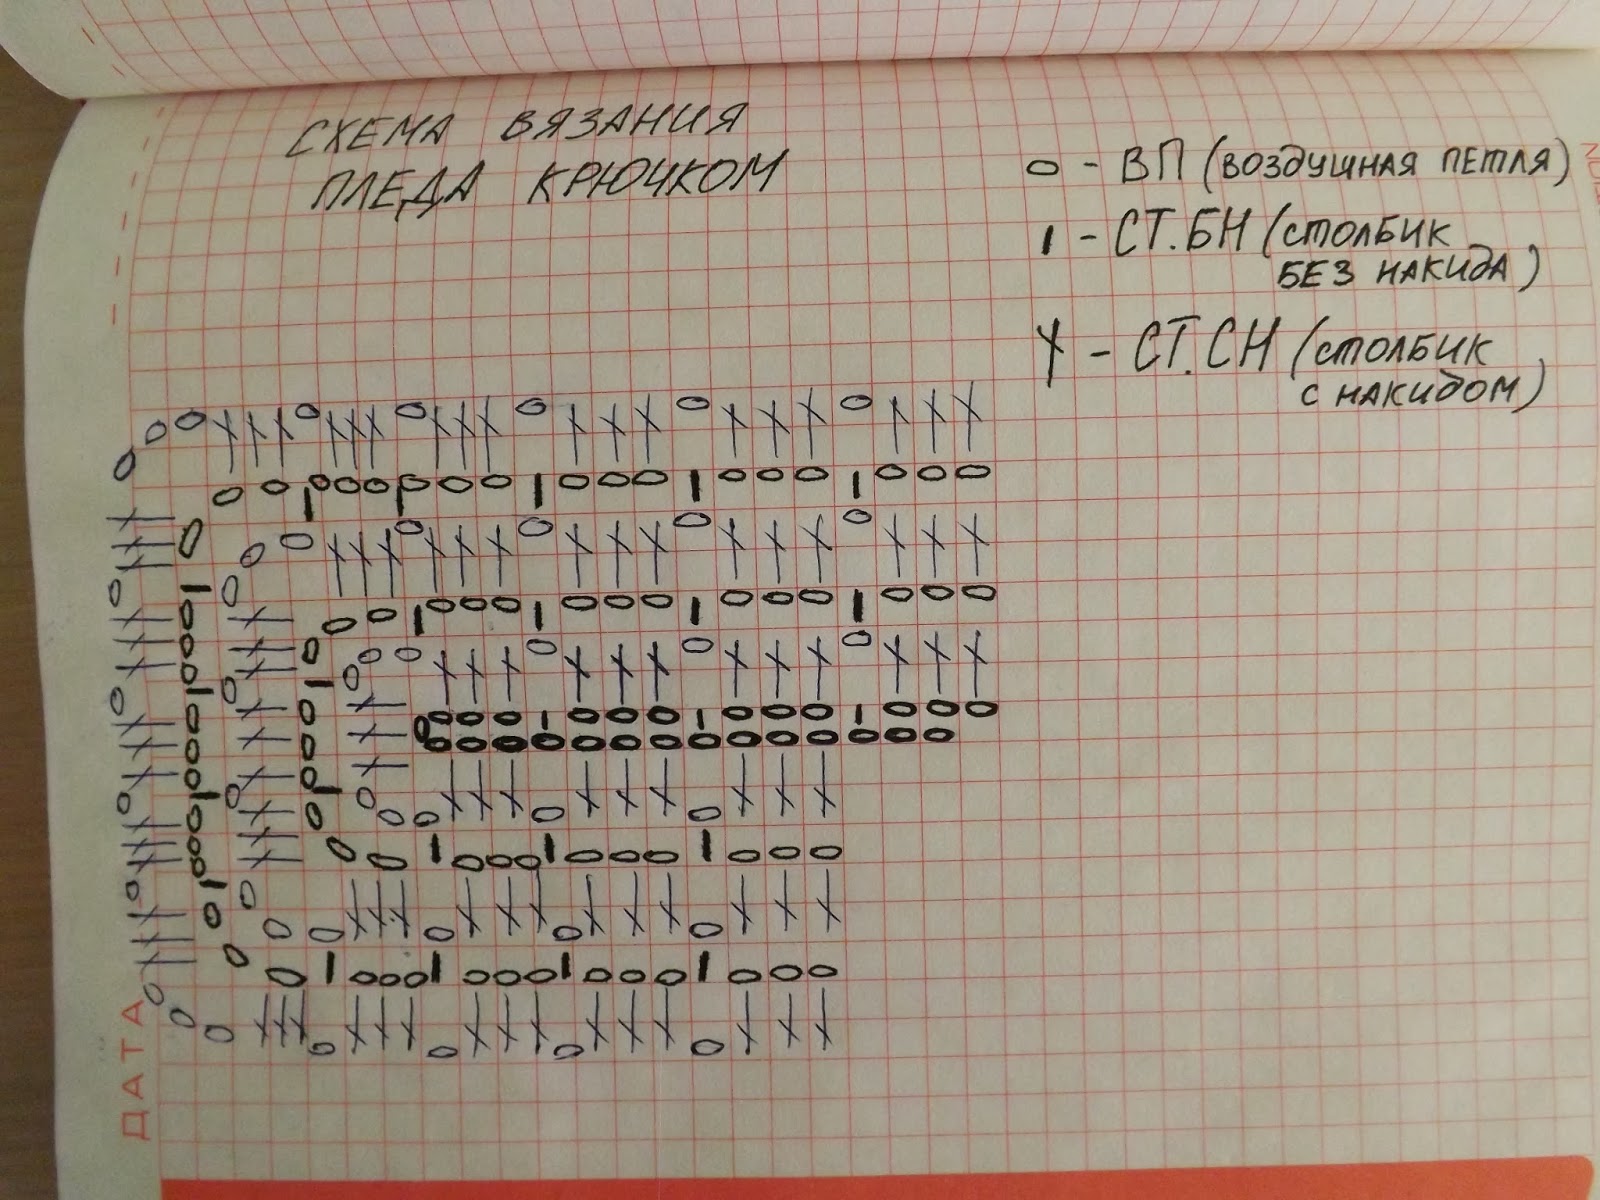 СХЕМА ВЯЗАНИЯ
ПЛЕДА КРЮЧКОМ
О - ВП (ВОЗДУШНАЯ ПЕТЛЯ)
I - СТ.БН (СТОЛБИК
БЕЗ НАКИДА)
† - СТ.СН (СТОЛБИК
С НАКИДОМ)
ДАТА